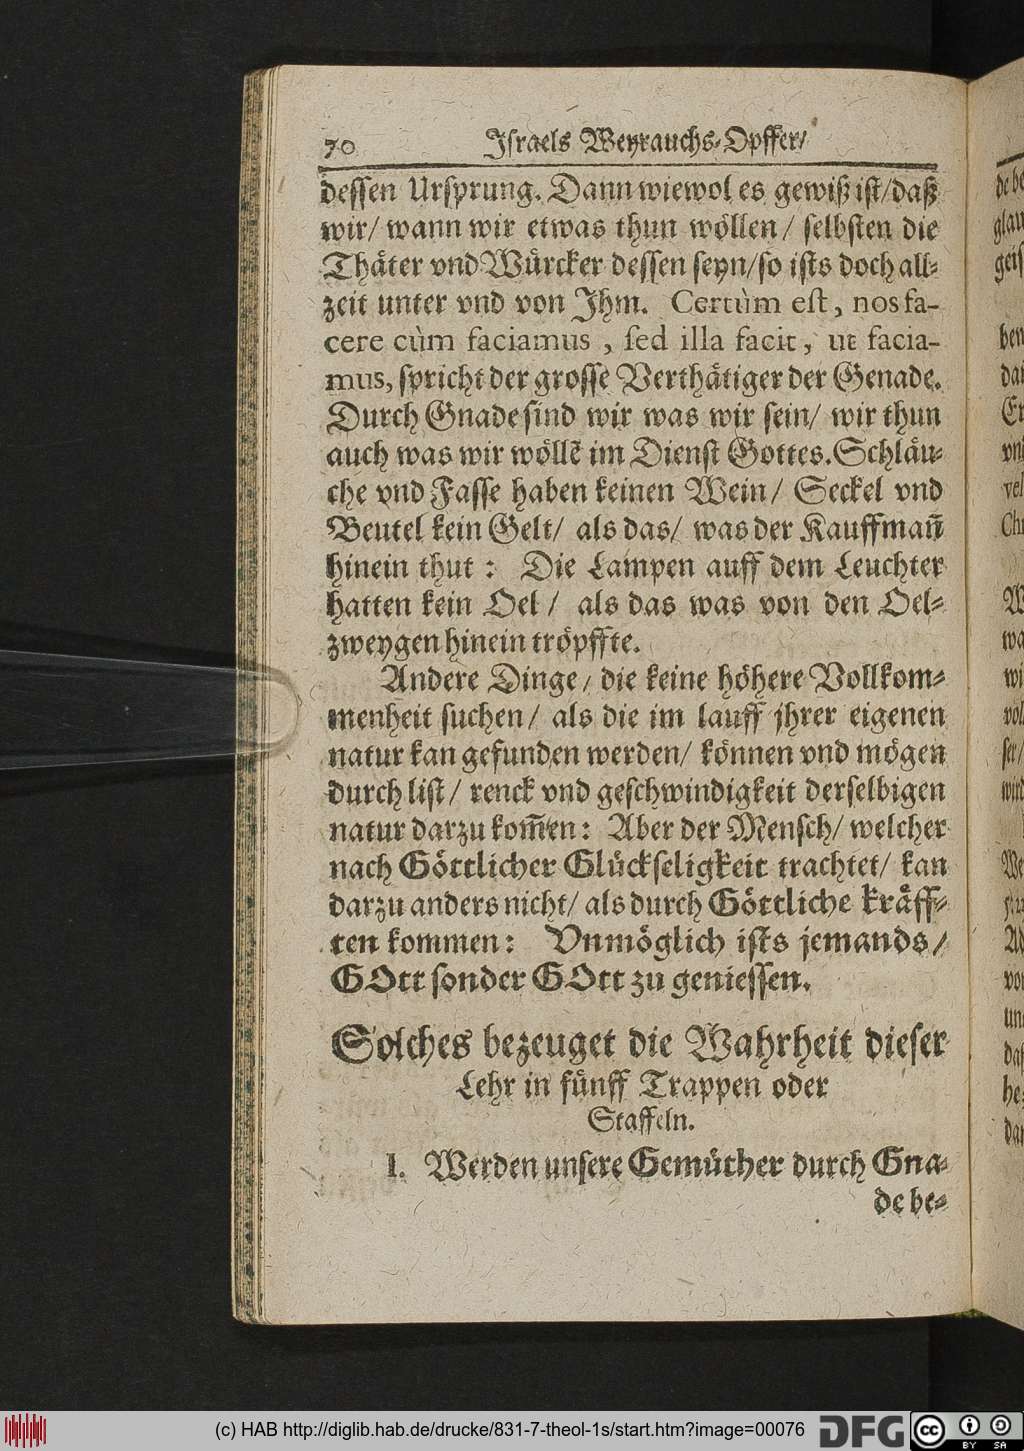 70 Israels Weyrauchs-Opffer/
dessen Ursprung. Dann wiewol es gewiß ist/daß
wir/ wann wir etwas thun wöllen/ selbsten die
Thäter vnd Würcker dessen seyn/so ists doch all-
zeit unter vnd von Jhm. Certùm est, nos fa-
cere cùm faciamus, sed illa facit, ut facia-
mus, spricht der grosse Verthätiger der Genade.
Durch Gnade sind wir was wir sein/ wir thun
auch was wir wölle͂ im Dienst Gottes. Schläu-
che vnd Fasse haben keinen Wein/ Seckel vnd
Beutel kein Gelt/ als das/ was der Kauffman̄
hinein thut: Die Lampen auff dem Leuchter
hatten kein Oel/ als das was von den Oel-
zweygen hinein tröpffte.
Andere Dinge/ die keine höhere Vollkom-
menheit suchen/ als die im lauff jhrer eigenen
natur kan gefunden werden/ können vnd mögen
durch list/ renck vnd geschwindigkeit derselbigen
natur darzu kom̄en: Aber der Mensch/ welcher
nach Göttlicher Glückseligkeit trachtet/ kan
darzu anders nicht/ als durch Göttliche kräff-
ten kommen: Vnmöglich ists jemands/
GOtt sonder GOtt zu geniessen.
Solches bezeuget die Wahrheit dieser
Lehr in fünff Trappen oder
Staffeln.
I. Werden unsere Gemüther durch Gna-
de be-
de be
glau
geis
ben
dar
Er
vn
vel
Chr
W
wa
wi
vol
ser/
wird
We
Ad
vor
un
das
he
dar
(c) HAB http://diglib.hab.de/drucke/831-7-theol-1s/start.htm?image=00076
DFG
cc
BY SA